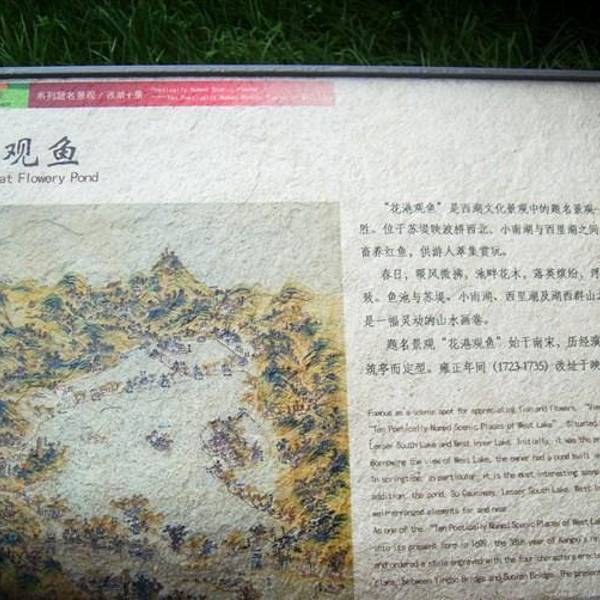 系列题名景观/西湖十景
观鱼
at Flowery Pond
"花港观鱼"是西湖文化景观中的题名景观
胜。位于苏堤映波桥西北,小南湖与西里湖之间
畜养红鱼,供游人萃集赏玩。
春日,暖风微拂,池畔花木,落英缤纷,
致。鱼池与苏堤、小南湖、西里湖及湖西群山
是一幅灵动的山水画卷。
题名景观"花港观鱼"始于南宋,历经
筑亭而定型。雍正年间(1723-1735)改址于映
Famous as a scenic spot for appreciating fish and flowers,
"Ten Poetically Named Scenic Places of West Lake". Situated
Lesser South Lake and West Inner Lake. Initially, it was the
Borrowing the view of West Lake, the owner had a pond built
In springtime, in particular, it is the most interesting
addition, the pond, Su Causeway, Lesser South Lake, West
well-arranged elements far and near.
As one of the "Ten Poetically Named Scenic Places of West
into its present form in 1699, the 38th year of Kangxi's
and ordered a stele engraved with the four characters
place, between Yingbo Bridge and Suolan Bridge. The present